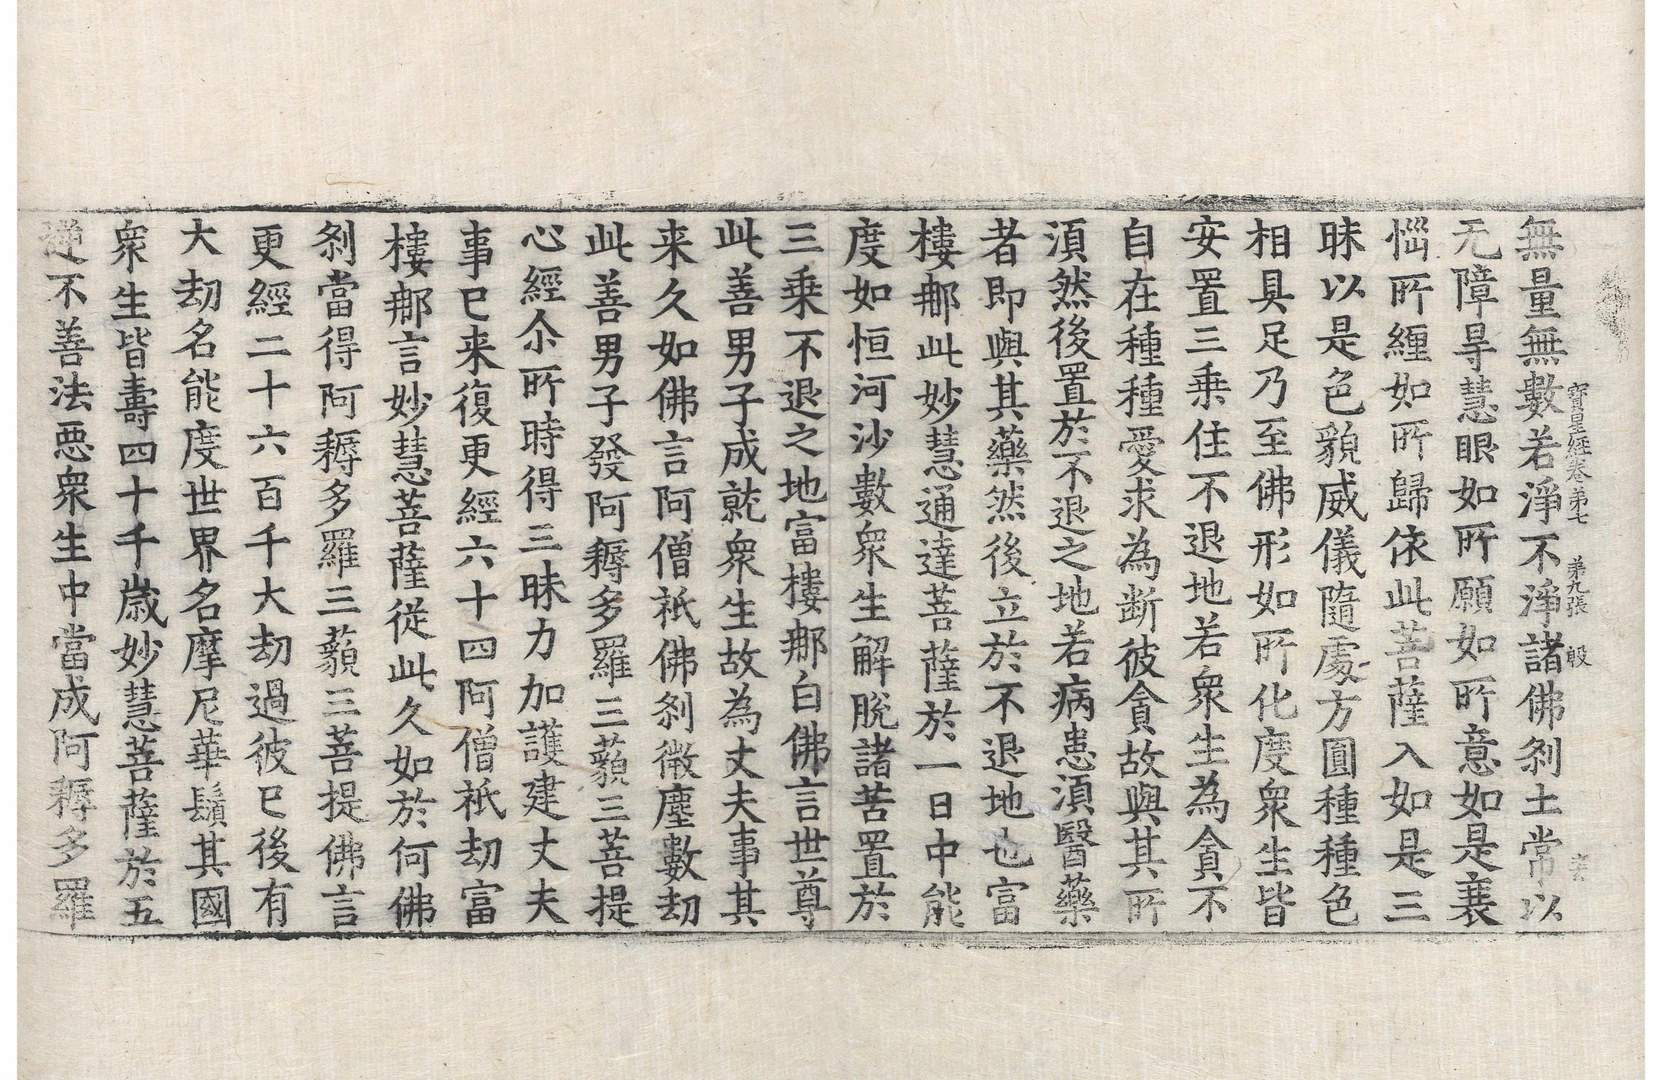 寶星經卷第七 第九張 殷
無量無數若淨不淨諸佛刹土常以
无障㝵慧眼如所願如所意如是衰
惱所纏如所歸依此菩薩入如是三
昧以是色䫉威儀隨處方圓種種色
相具足乃至佛形如所化度衆生皆
安置三乗住不退地若衆生為貪不
自在種種愛求為断彼貪故與其所
湏然後置於不退之地若病患湏醫藥
者即與其藥然後立於不退地也富
樓那此妙慧通達菩薩於一日中能
度如恒河沙數衆生解脫諸苦置於
三乗不退之地富樓那白佛言世尊
此善男子成就衆生故為丈夫事其
来久如佛言阿僧祇佛刹微塵數劫
此善男子發阿耨多羅三藐三菩提
心經尒所時得三昧力加護建丈夫
事已来復更經六十四阿僧祇劫富
樓那言妙慧菩薩從此久如於何佛
刹當得阿耨多羅三藐三菩提佛言
更經二十六百千大劫過彼已後有
大劫名能度世界名摩尼華鬚其國
衆生皆壽四十千歲妙慧菩薩於五
逆不善法惡衆生中當成阿耨多羅